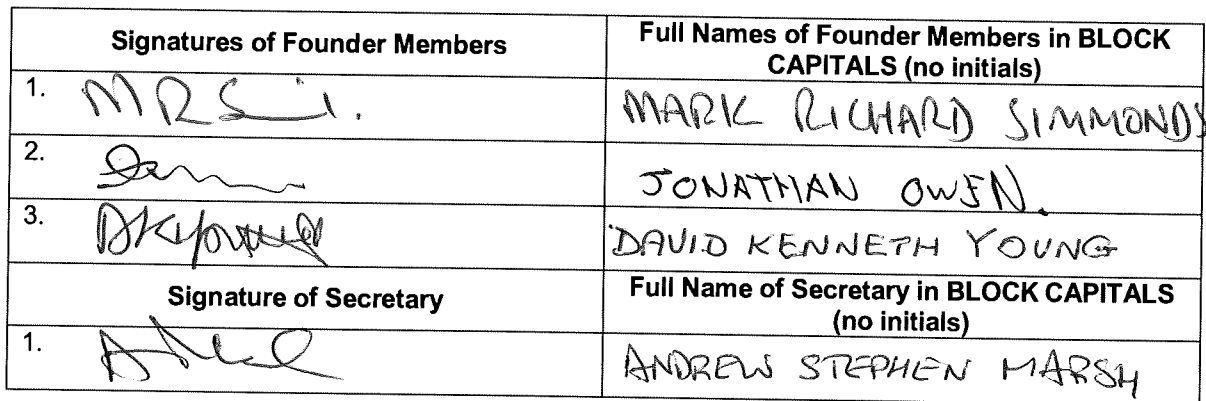 Signatures of Founder Members
Full Names of Founder Members in BLOCK
CAPITALS (no initials)
1. MRSi.
MARK RICHARD SIMMONDS
2.
JONATHAN OWEN.
3. DKYoung
DAVID KENNETH YOUNG
Signature of Secretary
Full Name of Secretary in BLOCK CAPITALS
(no initials)
1.
ANDREW STEPHEN MARSH